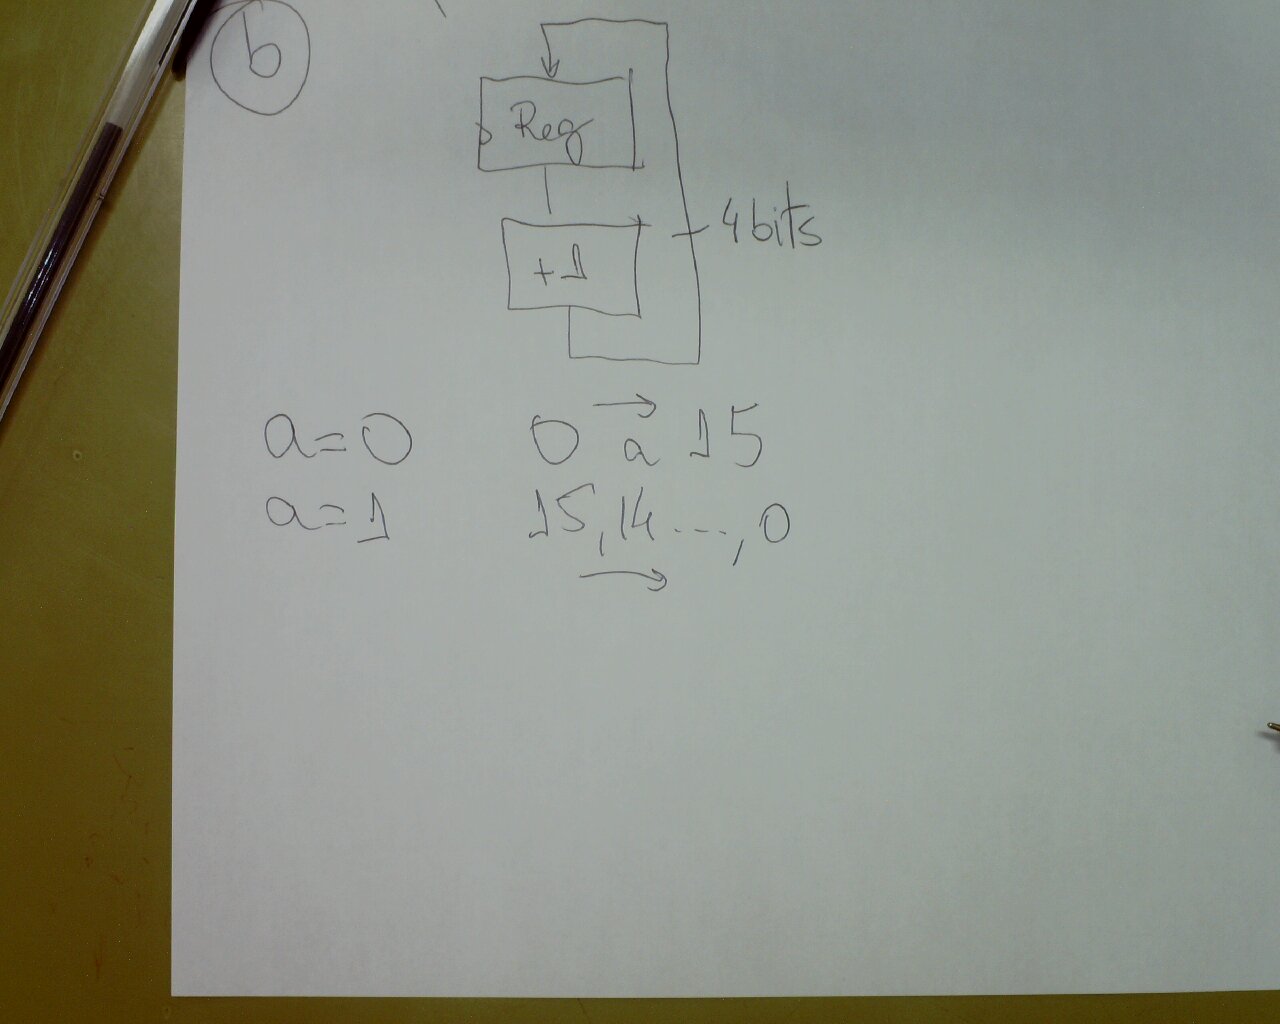 b
Reg
+1
4 bits
a=0 0 → a 15
a=1 15,14 ...,0
→